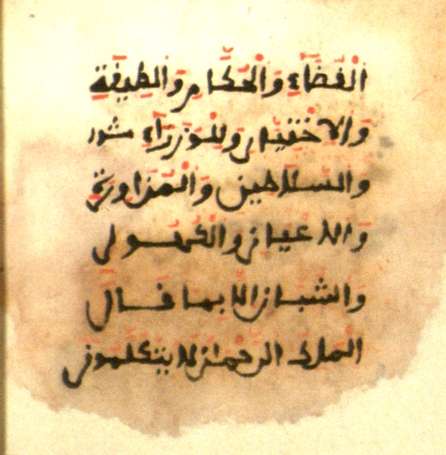 القضاء والحكام والطيفة
والاختيار وللوزراء شور
والسلاطين والمزاورة
والاعيان والكهول
والشبان الا بما قال
الملك الرحمان لا يتكلمون